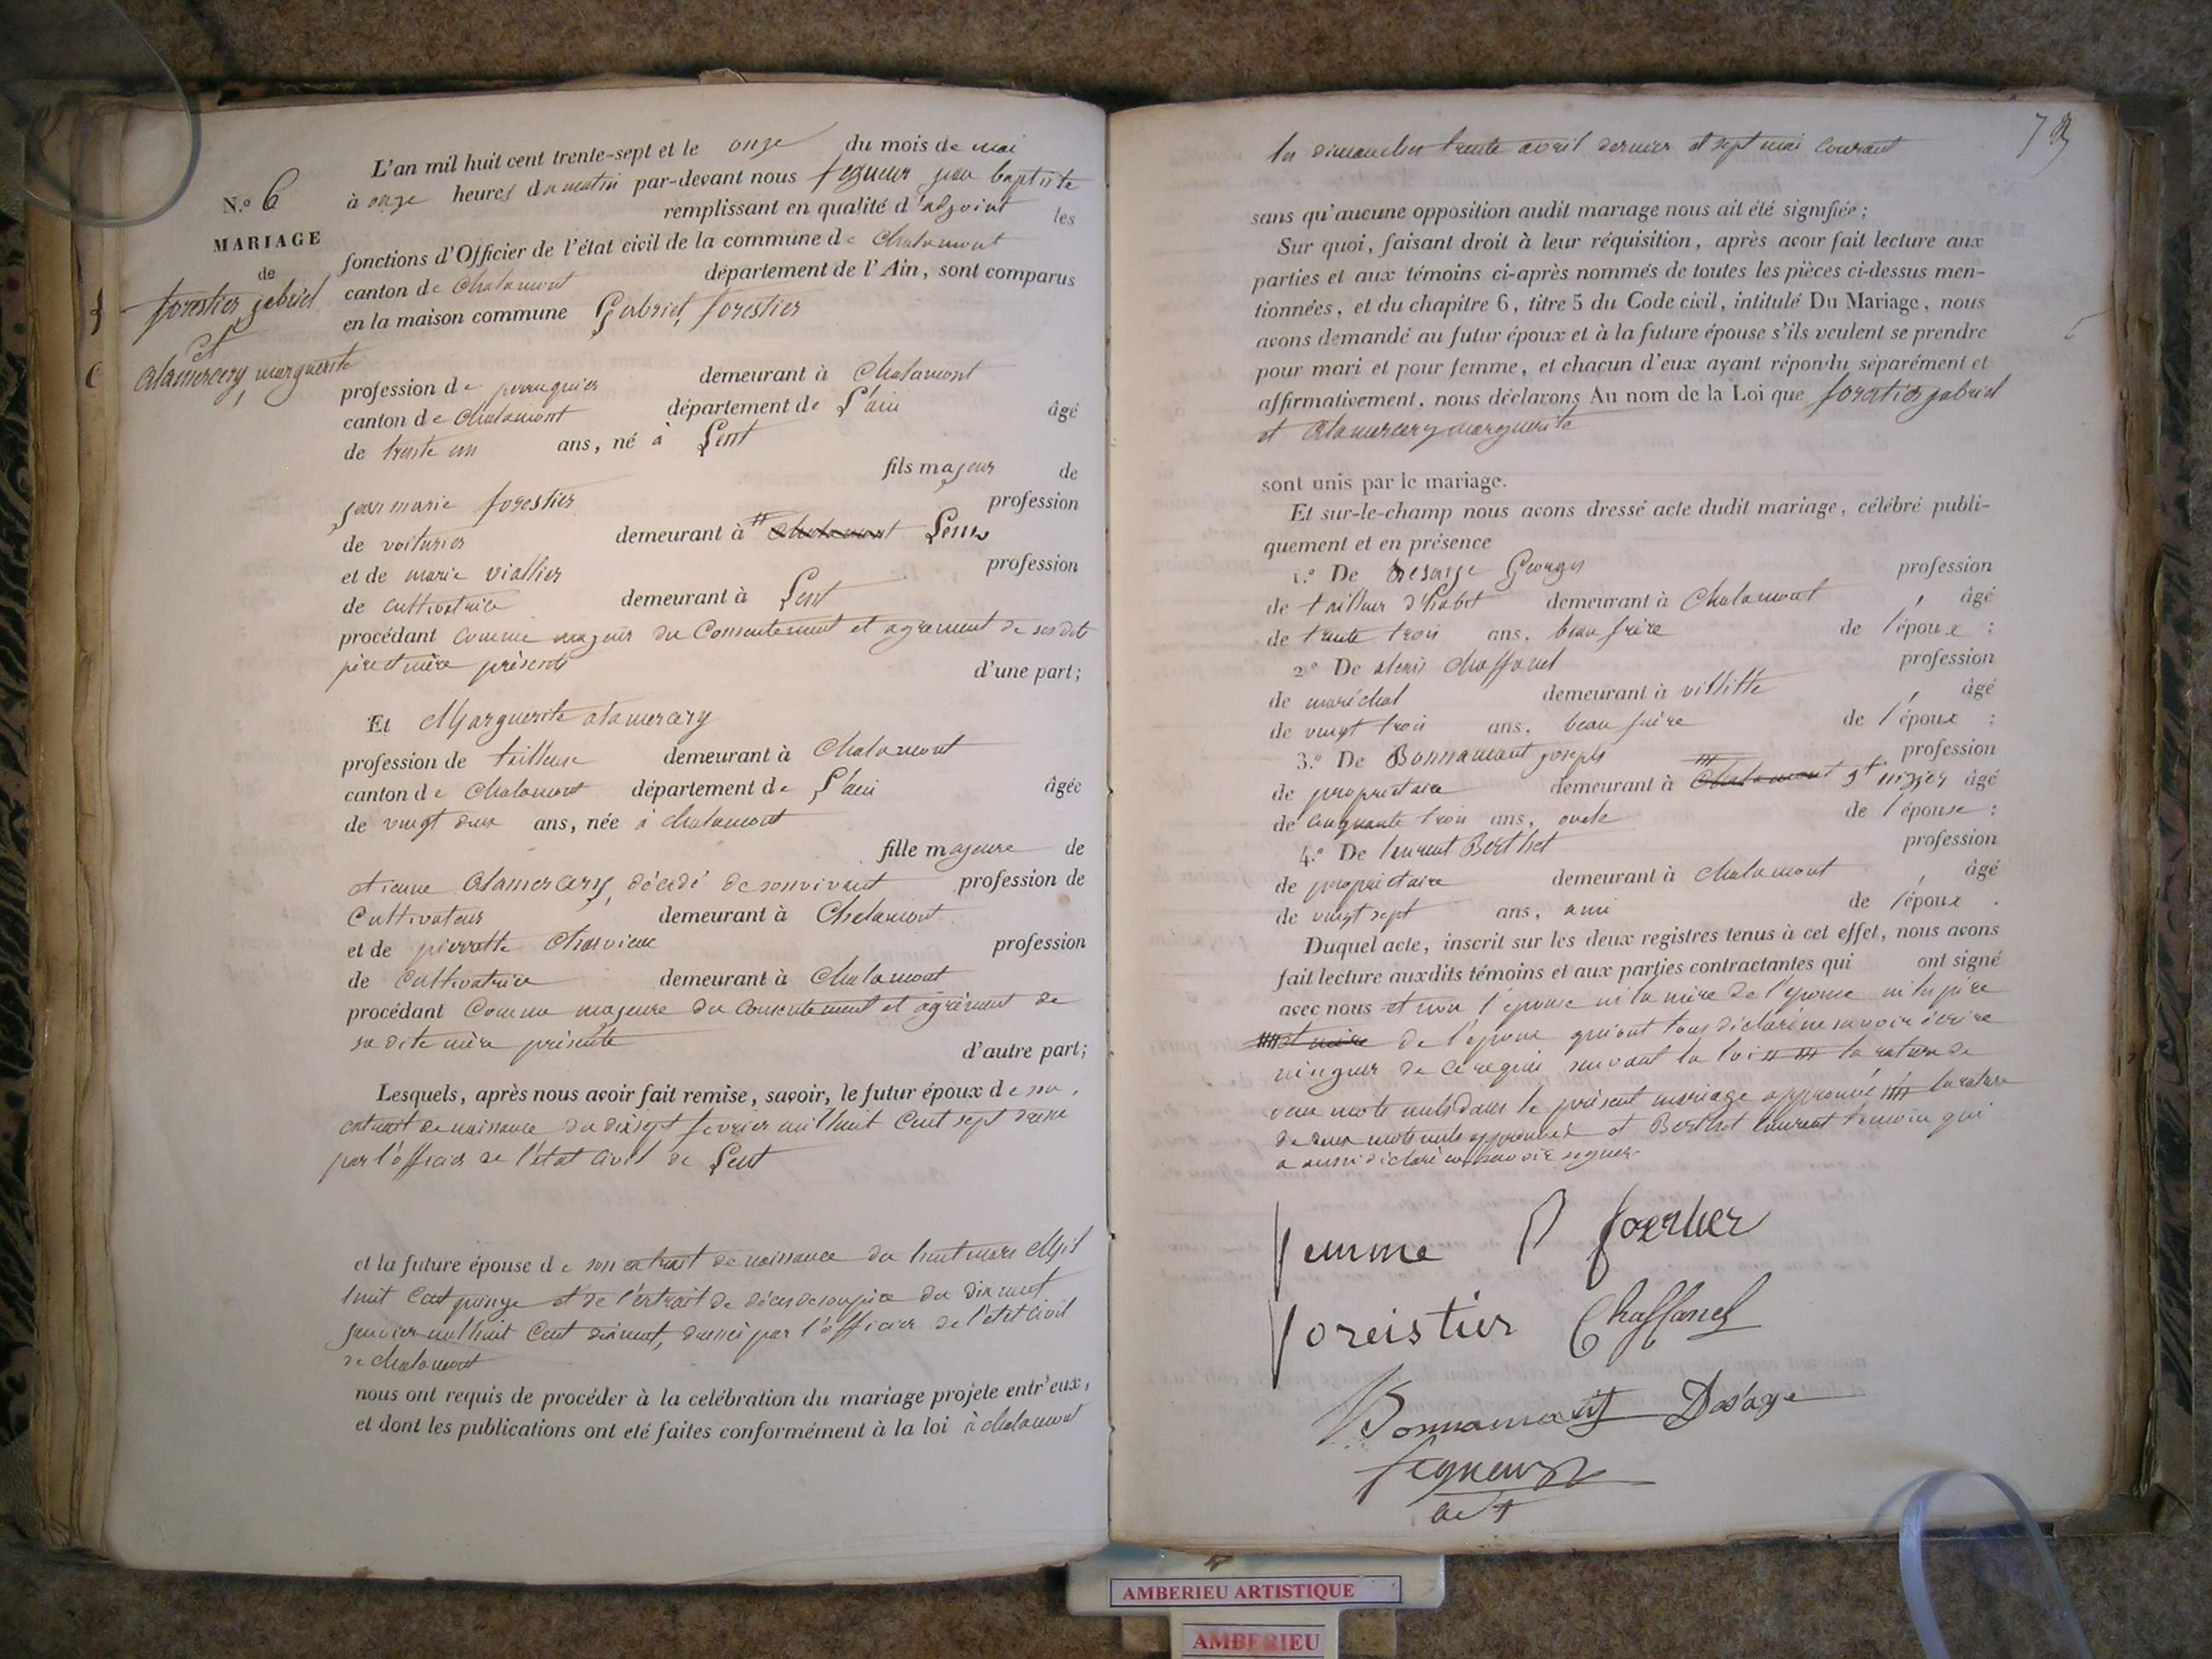 L'an mil huit cent trente-sept et le onze du mois de mai
à onze heures du matin par-devant nous jean baptiste
remplissant en qualité d'adjoint les
fonctions d'Officier de l'état civil de la commune de Chalamont
canton de Chalamont département de l'Ain, sont comparus
en la maison commune Gabriel forestier
N.º 6
MARIAGE
de
forestier gabriel
et
alamercery marguerite
profession de perruquier demeurant à Chalamont
canton de Chalamont département de L'ain âgé
de trente un ans, né à Lent
fils majeur de
jean marie forestier profession
de voiturier demeurant à Chalamont Lent
et de marie viallier profession
de cultivatrice demeurant à Lent
procédant comme majeur du Consentement et agrement de ses dits
père et mère présents d'une part;
Et Marguerite alamercery
profession de tailleuse demeurant à Chalamont
canton de Chalamont département de L'ain âgée
de vingt deux ans, née à chalamont
fille majeure de
etienne alamercery, décédé de son vivant profession de
Cultivateur demeurant à Chalamont
et de pierrette profession
de Cultivatrice demeurant à Chalamont
procédant Comme majeure du Consentement et agrément de
sa dite mère présente d'autre part;
Lesquels, après nous avoir fait remise, savoir, le futur époux de son
extrait de naissance du dix sept fevrier mil huit Cent sept
par l'officier de l'état Civil de Lent
et la future épouse de son extrait de naissance du huit mars Mil
huit Cent quinze et de l'extrait de décès de son père du dix neuf
janvier mil huit Cent dix neuf, par l'officier de l'état Civil
de chalamont
nous ont requis de procéder à la celébration du mariage projeté entr'eux,
et dont les publications ont eté faites conformément à la loi à chalamont
les dimanches trente avril dernier et sept mai Courant
sans qu'aucune opposition audit mariage nous ait été signifiée;
Sur quoi, faisant droit à leur réquisition, après avoir fait lecture aux
parties et aux témoins ci-après nommés de toutes les pièces ci-dessus men-
tionnées, et du chapitre 6, titre 5 du Code civil, intitulé Du Mariage, nous
avons demandé au futur époux et à la future épouse s'ils veulent se prendre
pour mari et pour femme, et chacun d'eux ayant répondu séparément et
affirmativement, nous déclarons Au nom de la Loi que forestier gabriel
et alamercery marguerite
sont unis par le mariage.
Et sur-le-champ nous avons dressé acte dudit mariage, célébré publi-
quement et en présence
1.º De Georges profession
de tailleur d'habit demeurant à Chalamont, âgé
de trente trois ans, beau frère de l'époux;
2.º De alexis Chaffanel profession
de maréchal demeurant à villette, âgé
de vingt trois ans, beau frère de l'époux;
3.º De Bonnamant joseph profession
de propriétaire demeurant à Chalamont St nizier âgé
de Cinquante trois ans, oncle de l'épouse:
4.º De laurent Berthet profession
de propriétaire demeurant à Chalamont, âgé
de vingt sept ans, ami de l'époux.
Duquel acte, inscrit sur les deux registres tenus à cet effet, nous avons
fait lecture auxdits témoins et aux parties contractantes qui ont signé
avec nous et non l'épouse ni la mère de l'épouse ni la père
et mère de l'époux qui ont tous déclaré ne savoir écrire
ni signer de ce requis suivant la loi la rature de
deux mots nuls dans le présent mariage approuvée la rature
de deux mots nuls approuvée et Berthet laurent témoin qui
a aussi déclaré ne savoir signer
foreistier Chaffanel
Bonnamant Desage
adt
AMBERIEU ARTISTIQUE
AMBERIEU